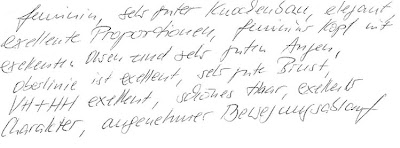 feminin, sehr guter Knochenbau, elegant
exellente Proportionen, feminin's Kopf mit
exelenten Ohren und sehr guten Augen,
Oberlinie ist exellent, sehr gute Brust,
VH+HH exellent, schönes Haar, exelenter
Charakter, angenehmer Bewegungsablauf